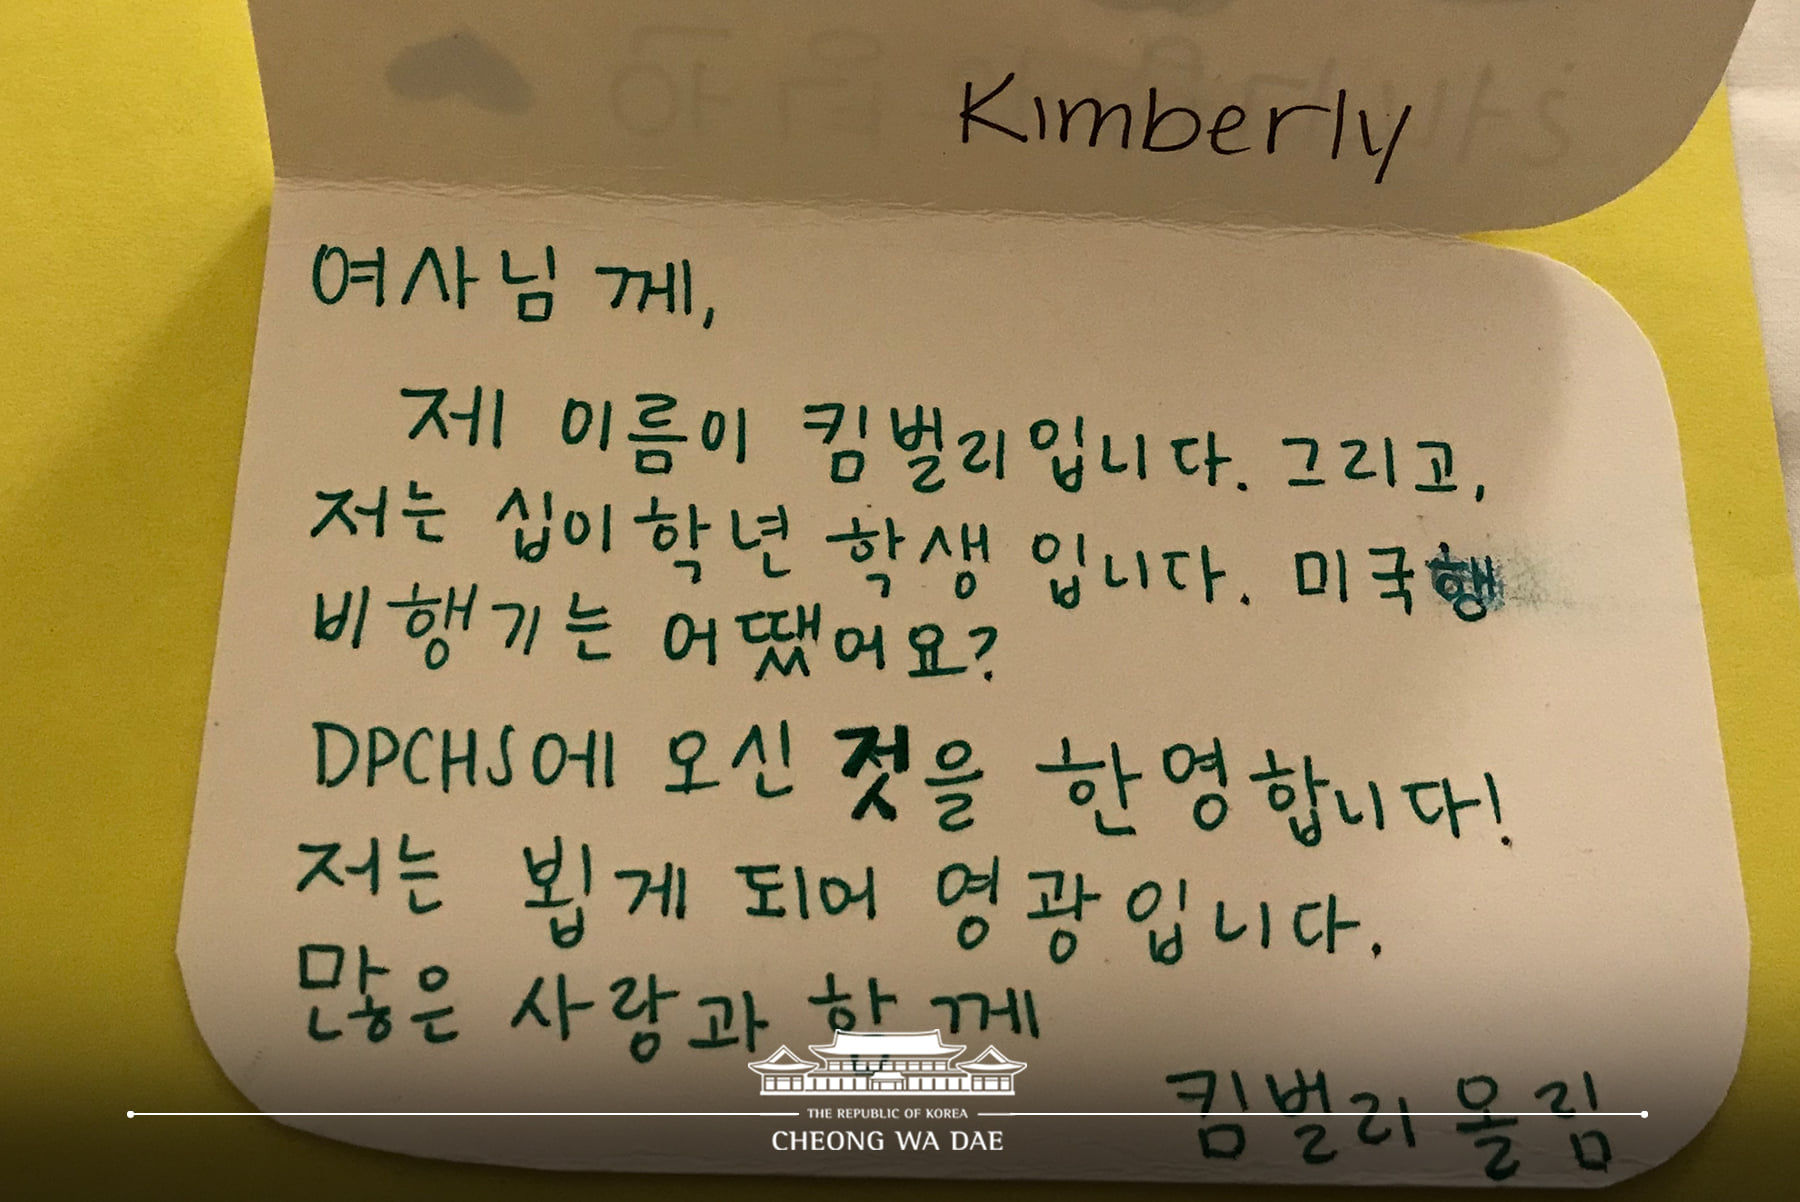 Kimberly
여사님 께,
제 이름이 킴벌리입니다. 그리고,
저는 십이학년 학생 입니다. 미국행
비행기는 어땠어요?
DPCHS에 오신 것을 한영합니다!
저는 뵙게 되어 영광입니다.
많은 사랑과 함께
킴벌리 올림
THE REPUBLIC OF KOREA
CHEONG WA DAE